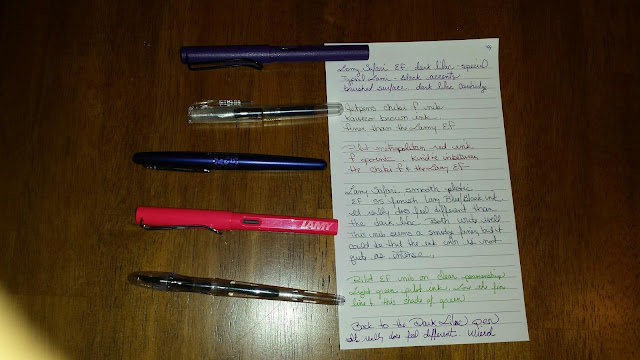 Lamy Safari EF dark lilac - special
Typical Lami - Black accents
brushed surface. dark lilac cartridge
Jetpens chibi f nib
Kaweco brown ink.
finer than the Lamy EF
Pilot metropolitan red ink
f point. Kind of inbetween
the chibi f & the Lamy EF
Lamy Safari smooth plastic
EF so finish Lamy Blue/Black ink
it really does feel different than
the dark lilac. Both write well
This nib seems a smudge finer but it
could be that the ink color is not
quite as intense.
Pilot EF nib on clear penmanship
Light green pilot ink. Love the fine
line & this shade of green
Back to the Dark Lilac pen
it really does feel different. Weird
LAMY